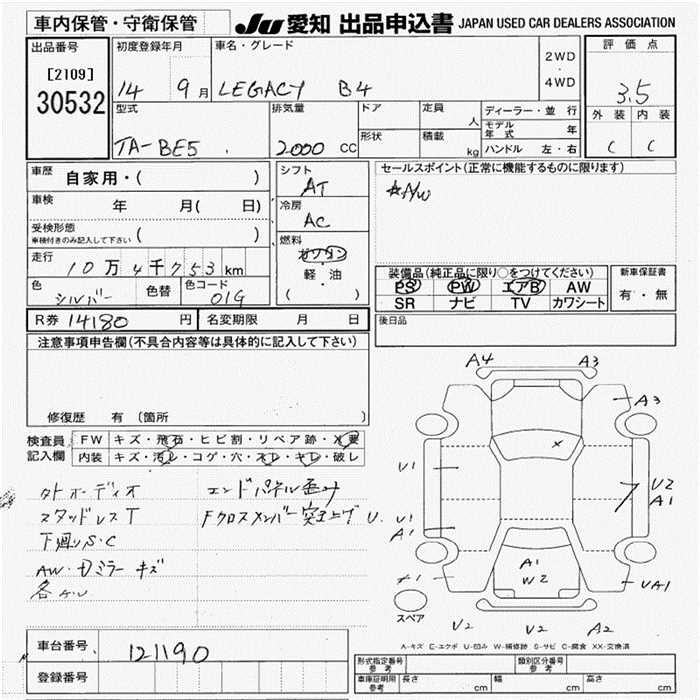 車内保管・守衛保管
JU 愛知 出品申込書 JAPAN USED CAR DEALERS ASSOCIATION
出品番号 初度登録年月 車名・グレード 2WD ・ 4WD 評価点
[2109] 14 9月 LEGACY B4 3.5
30532
型式 排気量 ドア 定員 人 ディーラー・並行 外装 内装
モデル年式 年
TA-BE5 2000 CC 形状 積載 kg ハンドル 左・右 C C
車歴 自家用・( )
シフト AT
セールスポイント(正常に機能するものに限ります)
A/W
車検 年 月( 日)
冷房 AC
受検形態 車検付きのみ記入して下さい ( )
燃料 ガソリン
軽・油
( )
走行 10万4千753km
色 シルバー 色替 色コード 01G
装備品(純正品に限り○をつけてください) 新車保証書
PS PW エアB AW 有・無
SR ナビ TV カワシート
R券 14180 円 名変期限 月 日
後日品
注意事項申告欄(不具合内容等は具体的に記入して下さい)
修復歴 有 〔箇所 〕
検査員記入欄 FW キズ・飛石・ヒビ割・リペア跡・X要
内装 キズ・汚レ・コゲ・穴・スレ・キレ・破レ
外オーディオ エンドパネル歪み
スタッドレスT Fクロスメンバー突上げ U.
下廻りS.C
AW・Dミラーキズ
A4 A3
A3
X
U1 U2
A1
U1
A1
A1
W2
UA1
スペア
U2 U2 A2
A-キズ E-エクボ U-凹み W-補修跡 S-サビ C-腐食 XX-交換済
車台番号 121190
登録番号
形式指定番号 参考 類別区分番号 参考
車庫証明用 参考 長さ cm 幅 cm 高さ cm